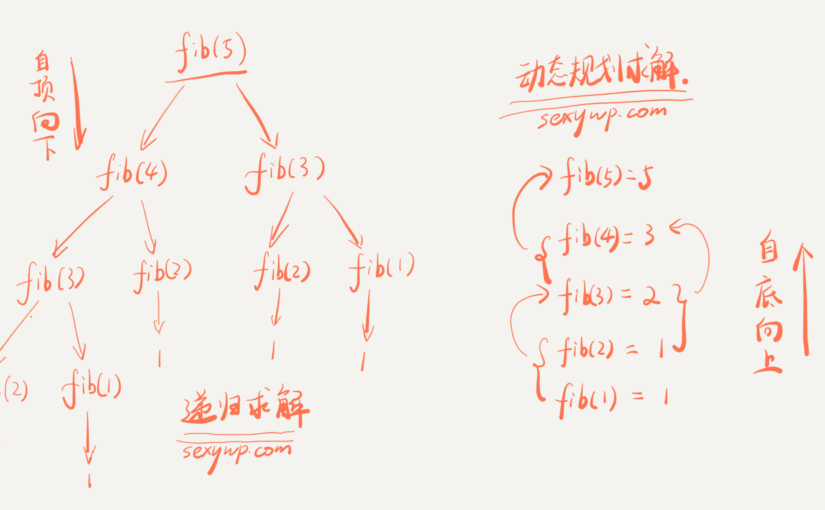 自顶向下
fib(5)
fib(4)
fib(3)
fib(3)
fib(2)
fib(2)
fib(1)
1
1
1
(2)
fib(1)
1
递归求解
sexywp.com
动态规划求解.
sexywp.com
fib(5)=5
fib(4)=3
fib(3)=2
fib(2)=1
fib(1)=1
自底向上